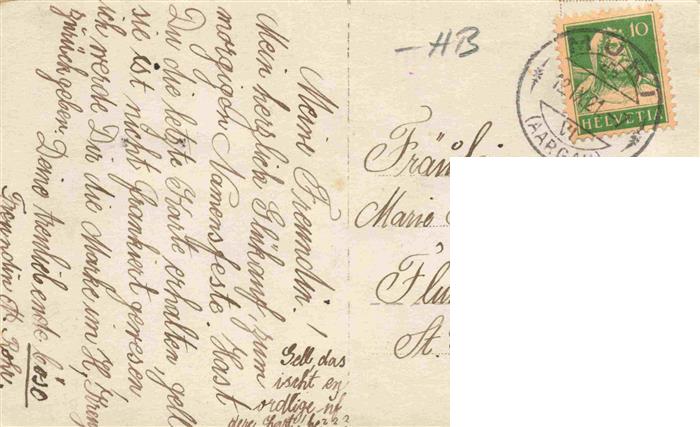 Meine Freundin!
Mein herzlich Glükauf, zum
morgigen Namensfeste. Hast
Du die letzte Karte erhalten, gell
sie ist nicht frankiert gewesen
ich werde Dir die Marke im
zurück geben. Deine treulieb ende böse
Freundin A. Rohr.
Gell das
ischt en
ordlige
dere
-HB
Marie
St.
MURI
(AARGAU)
10
HELVETIA